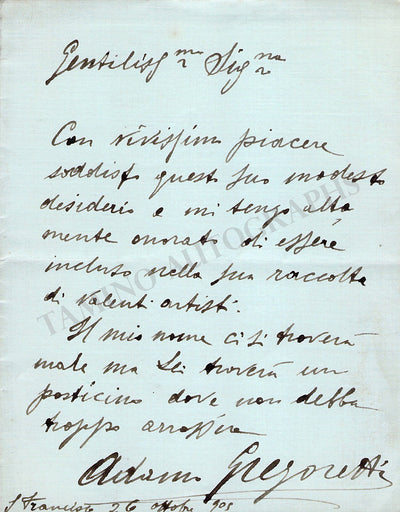 Gentilissma Signa
Con vivissimo piacere
soddisfo questo suo modesto
desiderio e mi tengo alta
mente onorato di essere
incluso nella sua raccolta
di valenti artisti.
Il mio nome ci si troverà
male ma Lei troverà un
posticino dove non debba
troppo arrossire
Adamo Gregoretti
S Francisco 26 ottobre 905
TAMINO AUTOGRAPHS